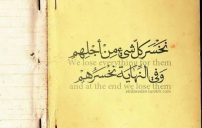 نخسر كل شيء من أجلهم
We lose everything for them
وفي النهاية نخسرهم
and at the end we lose them